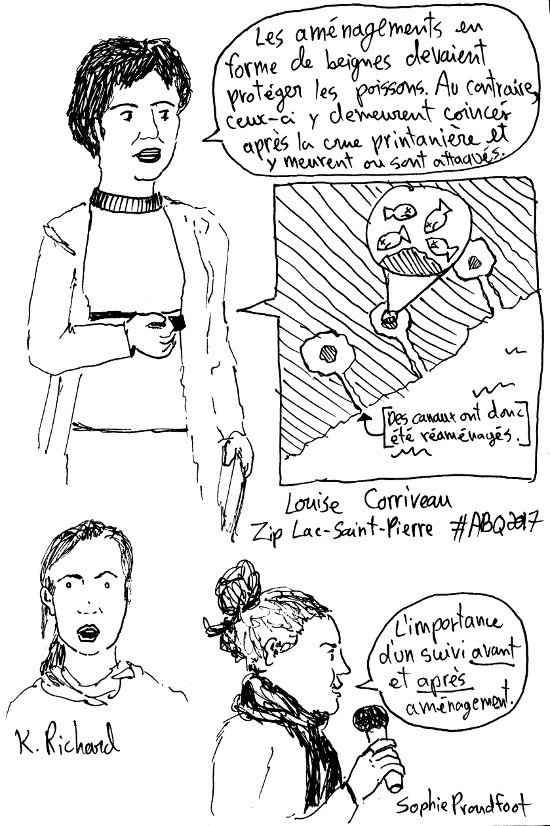 Les aménagements en
forme de beignes devaient
protéger les poissons. Au contraire,
ceux-ci y demeurent coincés
après la crue printanière et
y meurent ou sont attaqués.
Des canaux ont donc
été réaménagés.
Louise Corriveau
Zip Lac-Saint-Pierre #ABQ2017
L'importance
d'un suivi avant
et après
aménagement.
K. Richard
Sophie Proudfoot